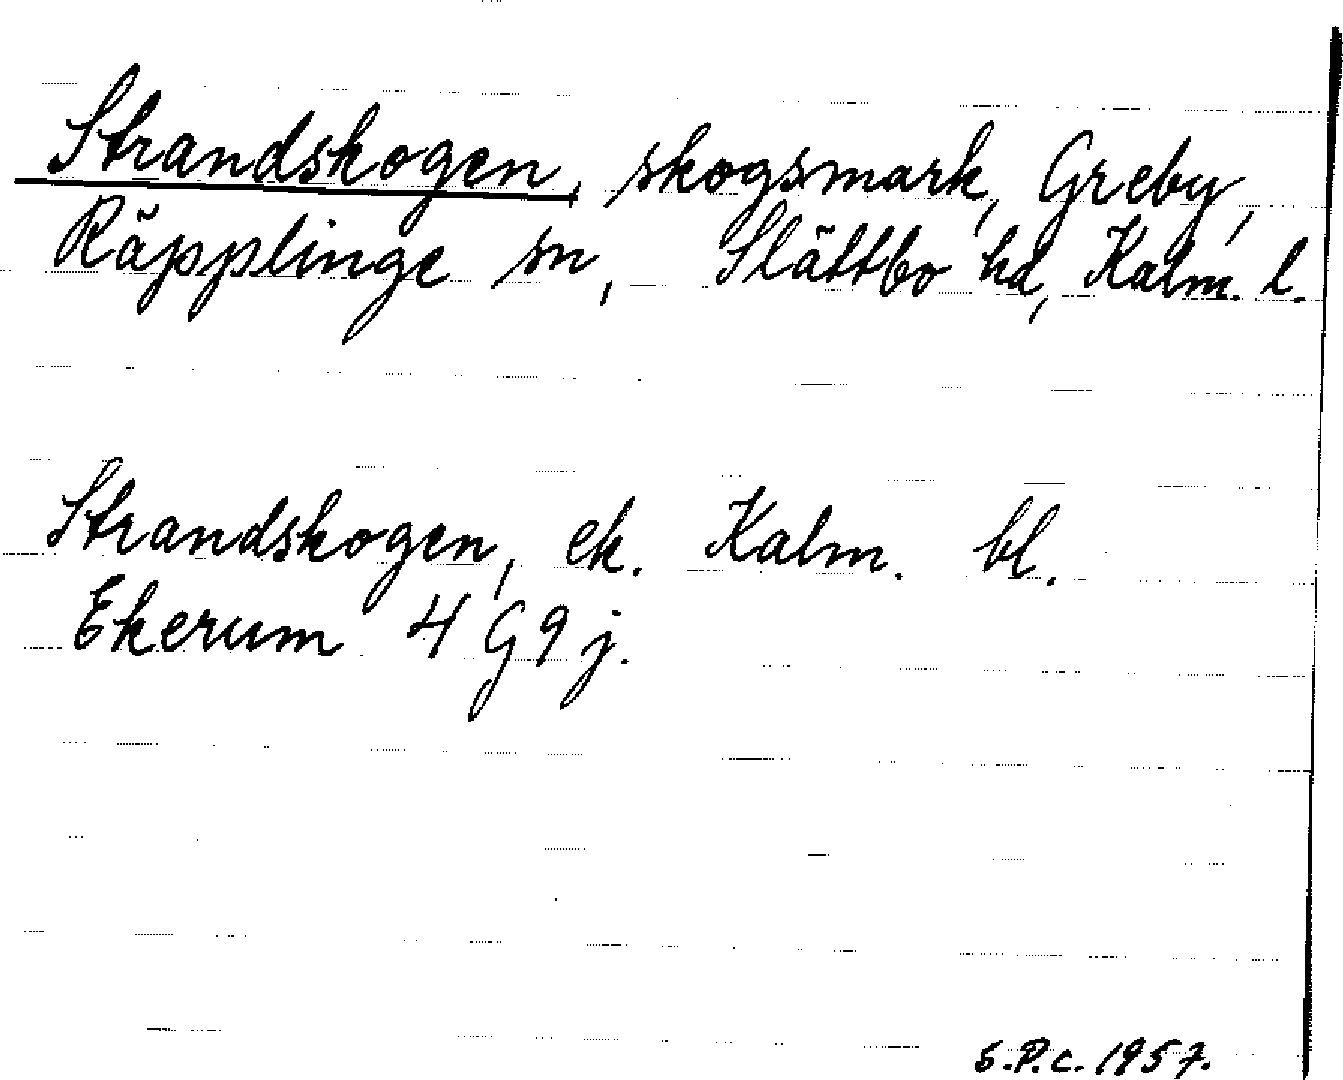 Strandskogen, skogsmark, Greby,
Räpplinge sn, Slättbo hd, Kalm. l.
Strandskogen, ek. Kalm. bl.
Ekerum 4 G 9 j.
S.P.C. 1957.